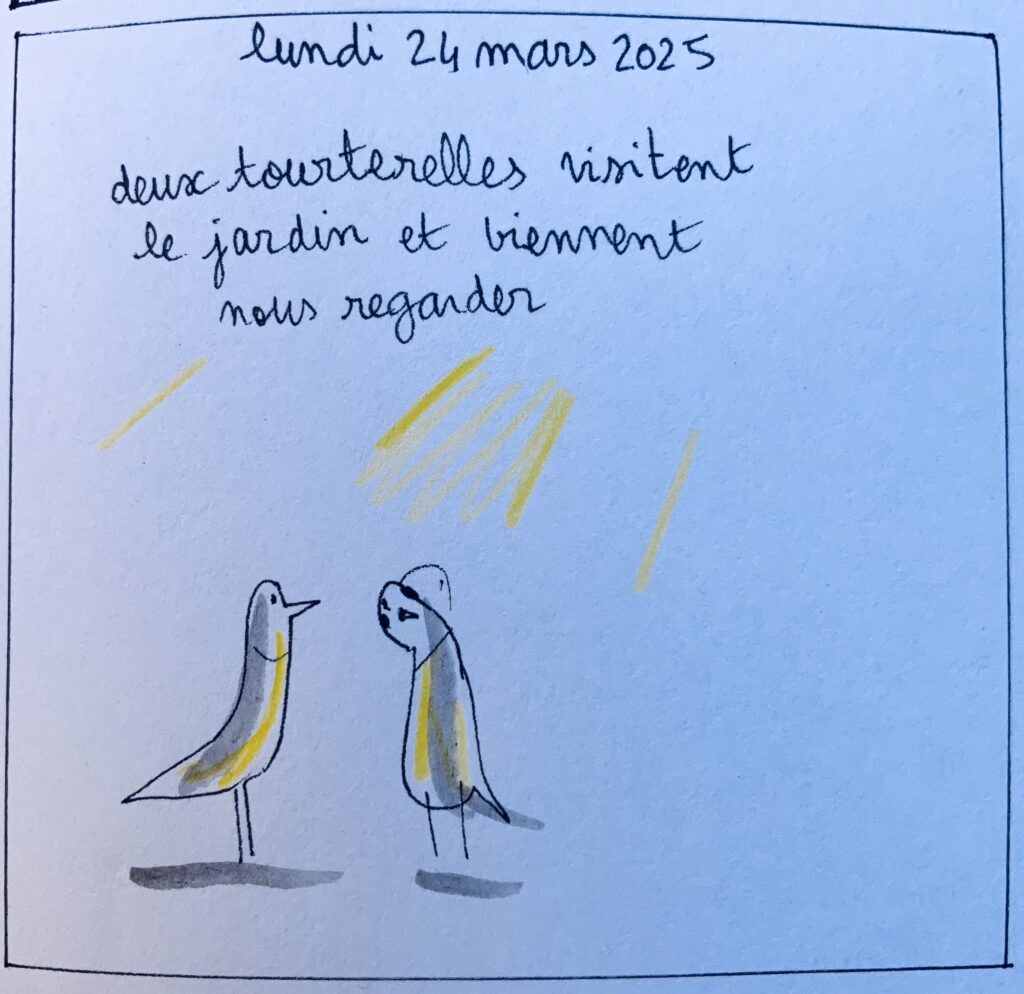 lundi 24 mars 2025
deux tourterelles visitent
le jardin et viennent
nous regarder